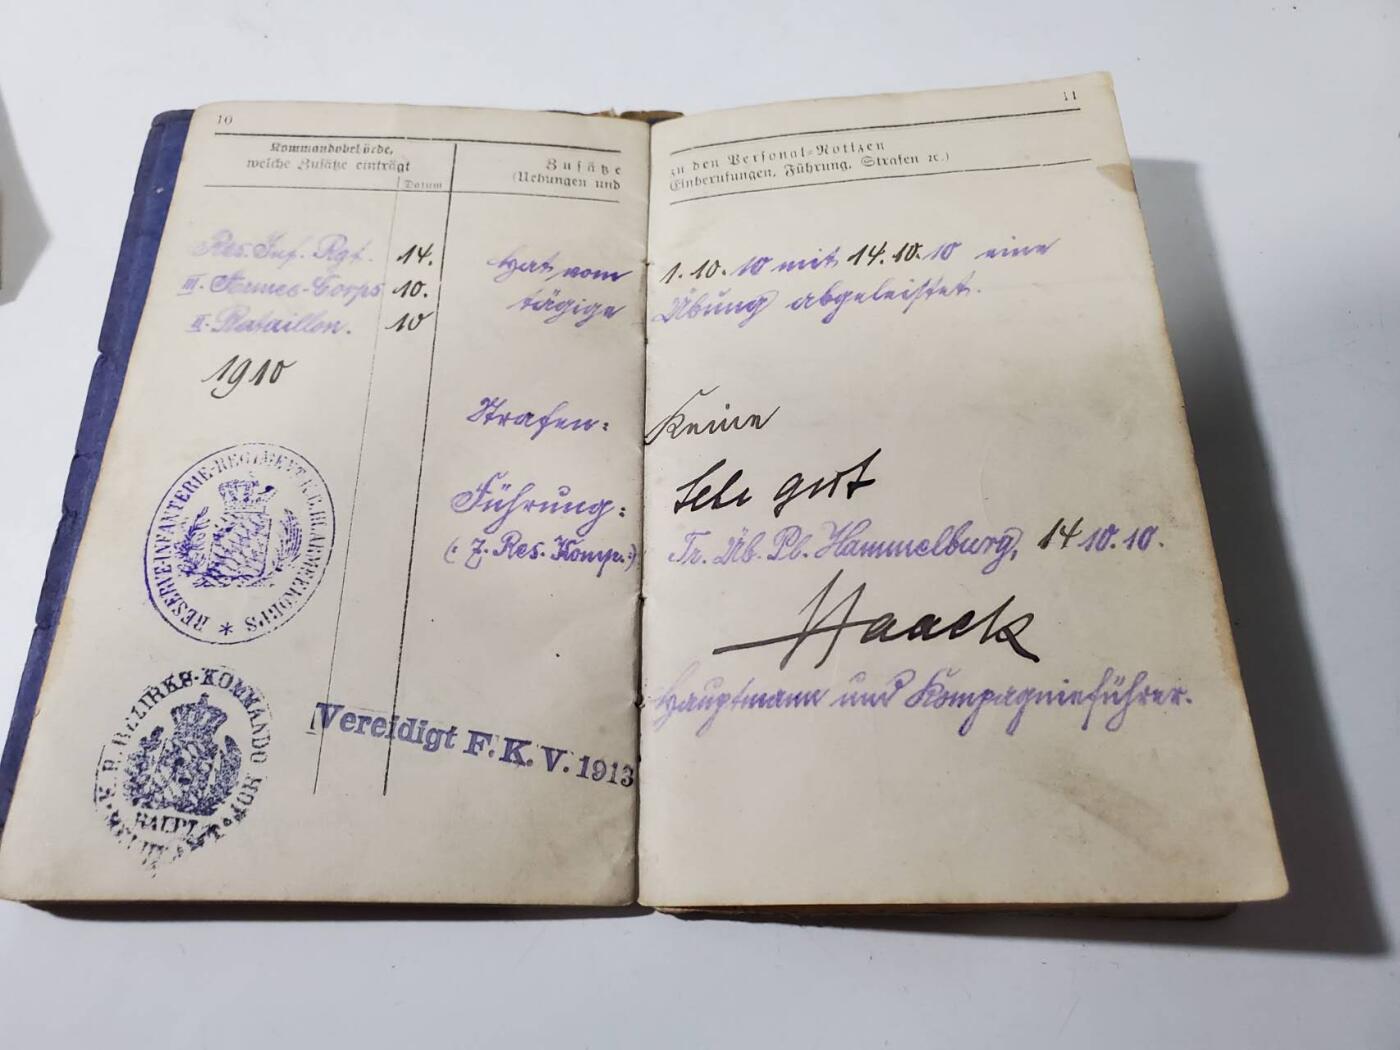 10
Kommandobehörde,
welche Zusätze einträgt
Datum
Zusätze
(Uebungen und
Res. Inf. Rgt. 14.
III. Armee-Corps 10.
II. Bataillon. 10
1910
Hat vom
tägige
Strafen:
Führung:
(: 7. Res. Komp. :)
RESERVEINFANTERIE-REGIMENT K.B. ARMEEKORPS
K.B. BEZIRKS-KOMMANDO
Vereidigt F. K. V. 1913
11
zu den Personal-Notizen
Einberufungen, Führung, Strafen ꝛc.)
1. 10. 10 mit 14. 10. 10 eine
Übung abgeleistet.
Keine
Sehr gut
Tr. Üb. Pl. Hammelburg, 14 10. 10.
Haack
Hauptmann und Kompagnieführer.